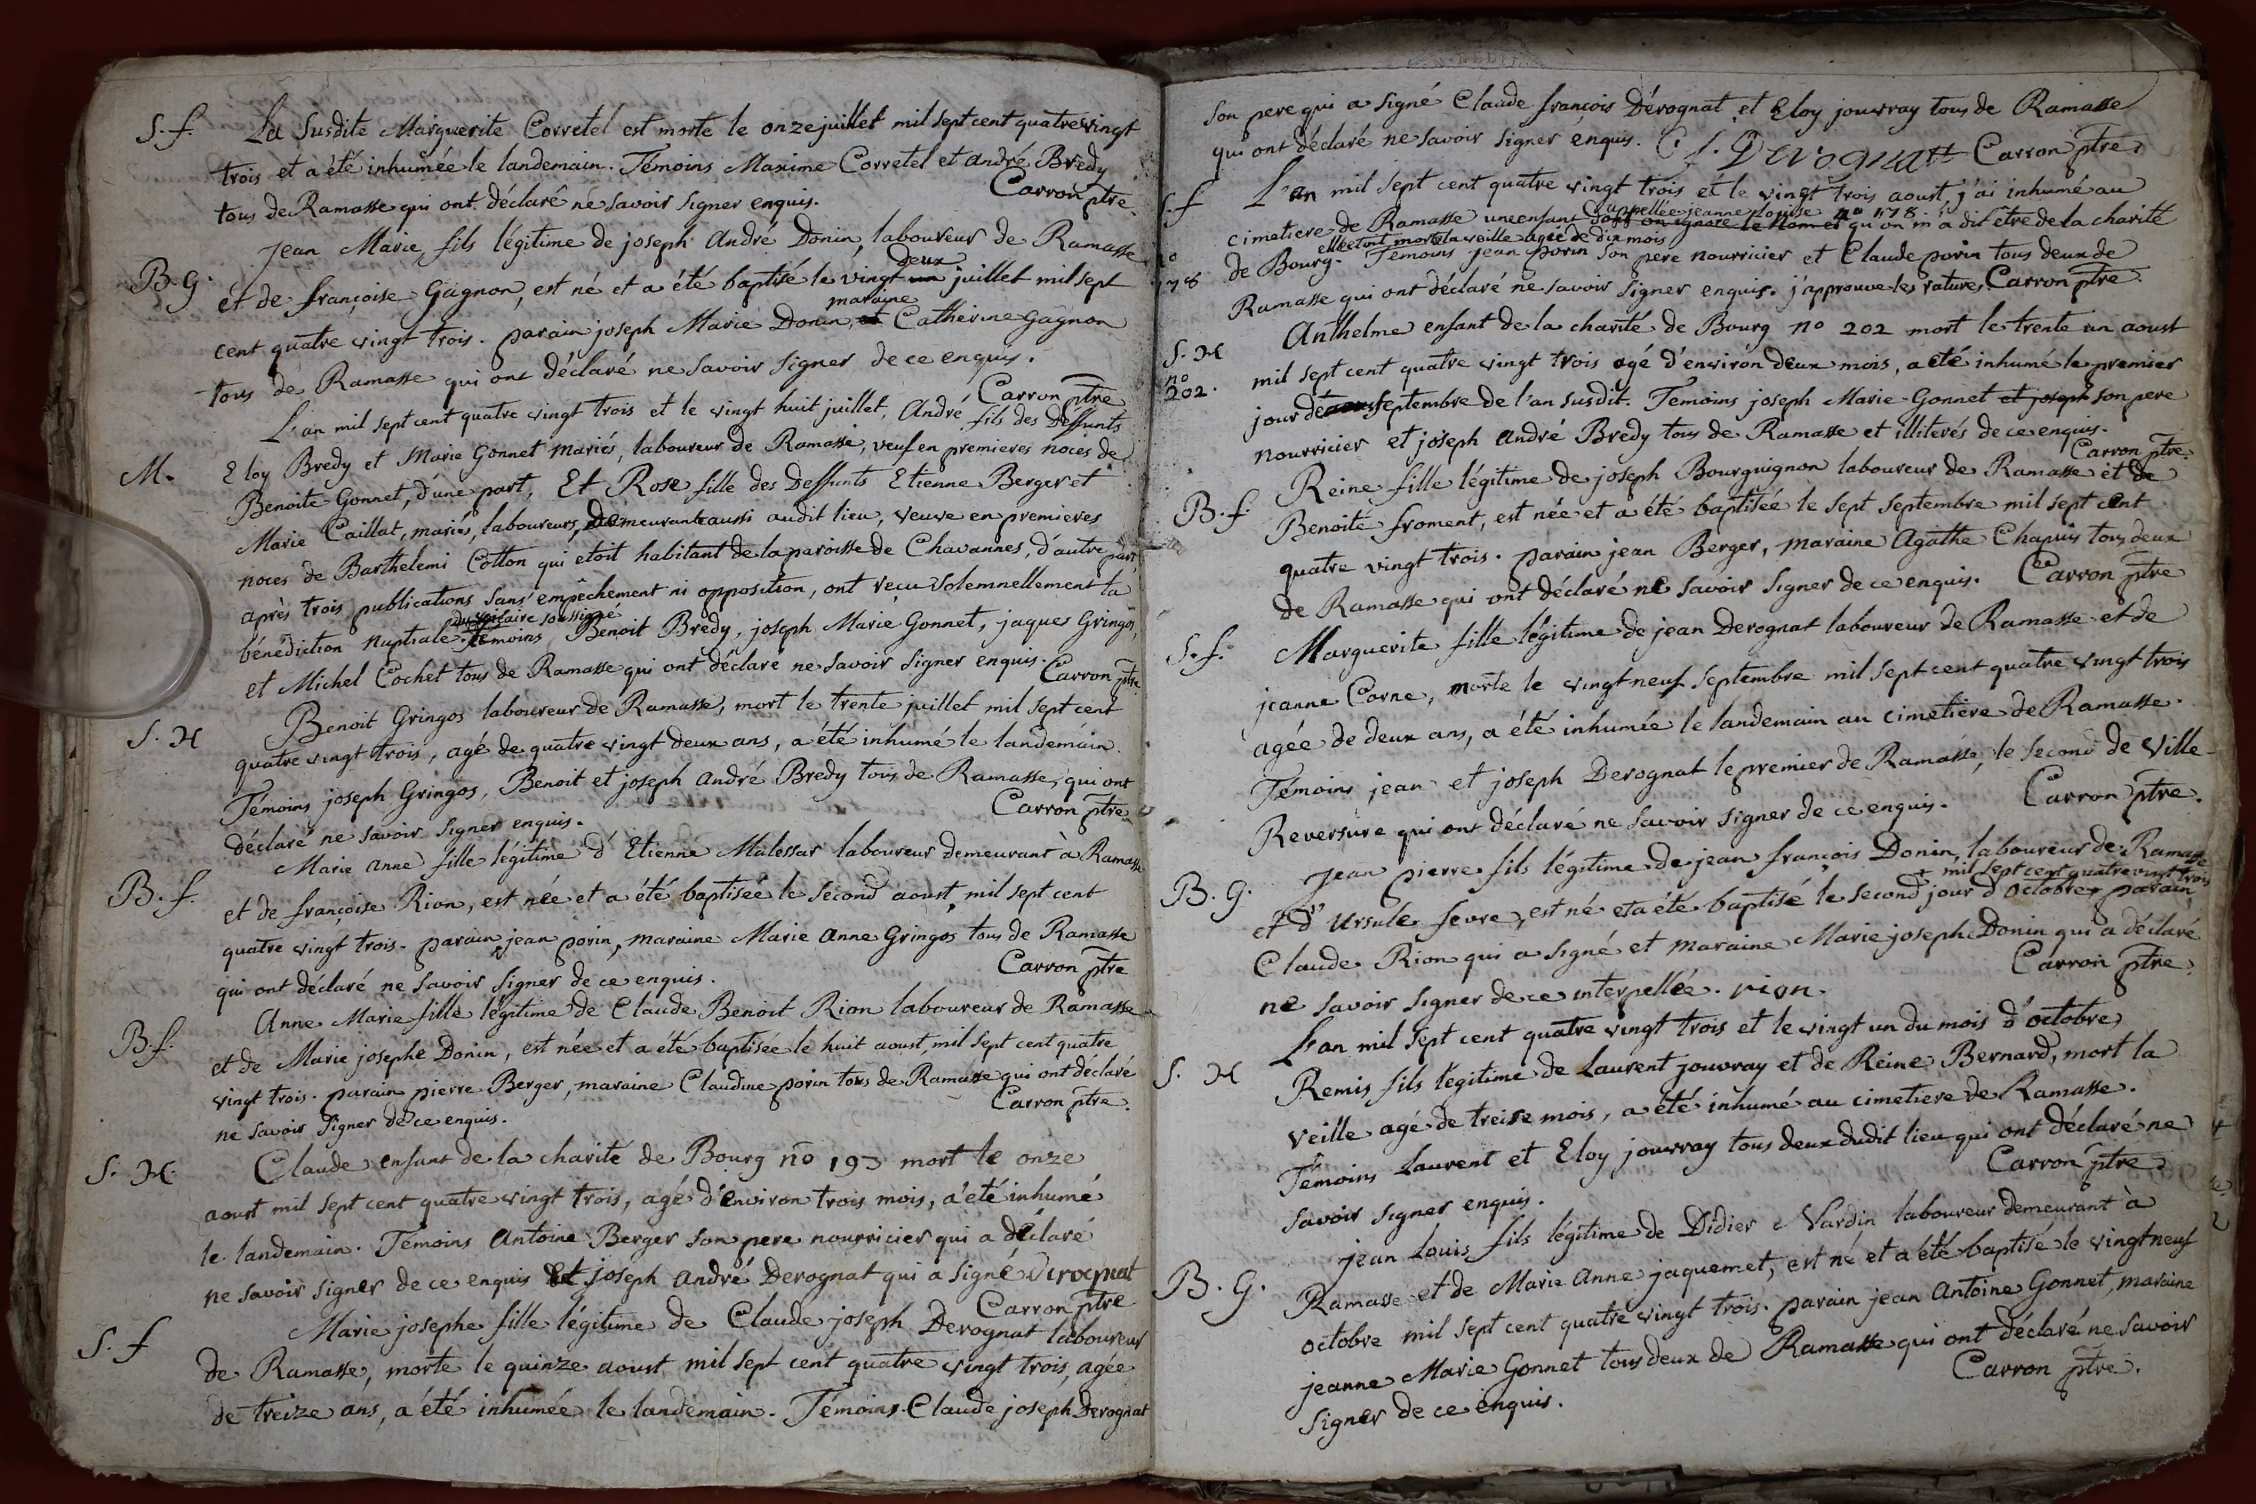 S. f. La Susdite Marguerite Corretel est morte le onze juillet mil sept cent quatre vingt
trois et a été inhumée le landemain. Témoins Maxime Corretel et andré Bredy
tous de Ramasse qui ont déclaré ne savoir signer enquis. Carron ptre.
jean Marie, fils légitime de joseph andré Donin, laboureur de Ramasse
B. g. et de françoise Gagnon, est né et a été baptisé le vingt un deux juillet mil sept
cent quatre vingt trois. parain joseph Marie Donin, et maraine Catherine gagnon
tous de Ramasse qui ont déclaré ne savoir signer de ce enquis.
Carron ptre
L'an mil sept cent quatre vingt trois et le vingt huit juillet, André fils des Deffunts
M. Eloy Bredy et Marie Gonnet mariés, laboureur de Ramasse, veuf en premieres noces de
Benoite Gonnet, d'une part, Et Rose fille des Deffunts Etienne Berger et
Marie Caillat, mariés, laboureurs, demeurante aussi audit lieu, veuve en premieres
noces de Barthelemi Cotton qui etoit habitant de la paroisse de Chavannes, d'autre part,
après trois publications sans empêchement ni opposition, ont reçu solemnellement la
bénédiction nuptiale du vicaire soussigné. Témoins Benoit Bredy, joseph Marie Gonnet, jaques Gringos,
et Michel Cochet tous de Ramasse qui ont déclaré ne savoir signer enquis. Carron ptre.
S. H Benoit Gringos laboureur de Ramasse, mort le trente juillet mil sept cent
quatre vingt trois, agé de quatre vingt deux ans, a été inhumé le landemain.
Témoins joseph Gringos, Benoit et joseph andré Bredy tous de Ramasse, qui ont
déclaré ne savoir signer enquis. Carron ptre
Marie anne fille légitime d'Etienne Malessar laboureur demeurant à Ramasse
B. f. et de françoise Rion, est née et a été baptisée le second aoust, mil sept cent
quatre vingt trois. parain jean porin, maraine Marie anne Gringos tous de Ramasse
qui ont déclaré ne savoir signer de ce enquis. Carron ptre
Anne Marie fille légitime de Claude Benoit Rion laboureur de Ramasse
B. f. et de Marie josephe Donin, est née et a été baptisée le huit aoust, mil sept cent quatre
vingt trois. parain pierre Berger, maraine Claudine porin tous de Ramasse qui ont déclaré
ne savoir signer de ce enquis. Carron ptre.
S. H. Claude enfant de la charité de Bourg no 193 mort le onze
aoust mil sept cent quatre vingt trois, agé d'environ trois mois, a été inhumé
le landemain. Témoins Antoine Berger son pere nourricier qui a déclaré
ne savoir signer de ce enquis Et joseph andré Derognat qui a signé Derognat
Carron ptre
S. f Marie josephe fille légitime de Claude joseph Derognat laboureur
de Ramasse, morte le quinze aoust mil sept cent quatre vingt trois, agée
de treize ans, a été inhumée le landemain. Témoins Claude joseph Derognat
son pere qui a signé Claude françois Dérognat et Eloy jouvray tous de Ramasse
qui ont déclaré ne savoir signer enquis. C. f. Derognatt Carron ptre.
S. f L'an mil sept cent quatre vingt trois et le vingt trois aoust, j'ai inhumé au
cimetiere de Ramasse une enfant dont on ignore le nom appellée jeanne Louise no 178 qu'on m'a dit être de la charité
no 178 de Bourg. elle etoit morte la veille agée de dix mois Témoins jean porin son pere nourricier et Claude porin tous deux de
Ramasse qui ont déclaré ne savoir signer enquis. j'approuve les ratures, Carron ptre.
S. H Anthelme enfant de la charité de Bourg no 202 mort le trente un aoust
no 202. mil sept cent quatre vingt trois agé d'environ deux mois, a été inhumé le premier
jour de septembre de l'an susdit. Temoins joseph Marie Gonnet et joseph son pere
nourricier et joseph andré Bredy tous de Ramasse et illiterés de ce enquis.
Carron ptre.
Reine fille légitime de joseph Bourguignon laboureur de Ramasse et de
B. f. Benoite froment, est née et a été baptisée le sept septembre mil sept cent
quatre vingt trois. parain jean Berger, maraine Agathe Chapuis tous deux
de Ramasse qui ont déclaré ne savoir signer de ce enquis. Carron ptre
S. f. Marguerite fille légitime de jean Derognat laboureur de Ramasse et de
jeanne Corne, morte le vingt neuf septembre mil sept cent quatre vingt trois
agée de deux ans, a été inhumée le landemain au cimetiere de Ramasse.
Témoins jean et joseph Derognat le premier de Ramasse, le second de Ville
Reversure qui ont déclaré ne savoir signer de ce enquis. Carron ptre.
B. g. jean pierre fils légitime de jean françois Donin, laboureur de Ramasse
et d'Ursule fevre, est né et a été baptisé le second jour d'octobre mil sept cent quatre vingt trois parain
Claude Rion qui a signé et maraine Marie josephe Donin qui a déclaré
ne savoir signer de ce interpellée. rion. Carron ptre.
L'an mil sept cent quatre vingt trois et le vingt un du mois d'octobre
S. H Remis fils légitime de Laurent jouvray et de Reine Bernard, mort la
veille agé de treise mois, a été inhumé au cimetiere de Ramasse.
Témoins Laurent et Eloy jouvray tous deux dudit lieu qui ont déclaré ne
savoir signer enquis. Carron ptre
jean Louis fils légitime de Didier Nardin laboureur demeurant à
B. G. Ramasse et de Marie Anne jaquemet, est né et a été baptisé le vingt neuf
octobre mil sept cent quatre vingt trois. parain jean Antoine Gonnet, maraine
jeanne Marie Gonnet tous deux de Ramasse qui ont déclaré ne savoir
signer de ce enquis. Carron ptre.